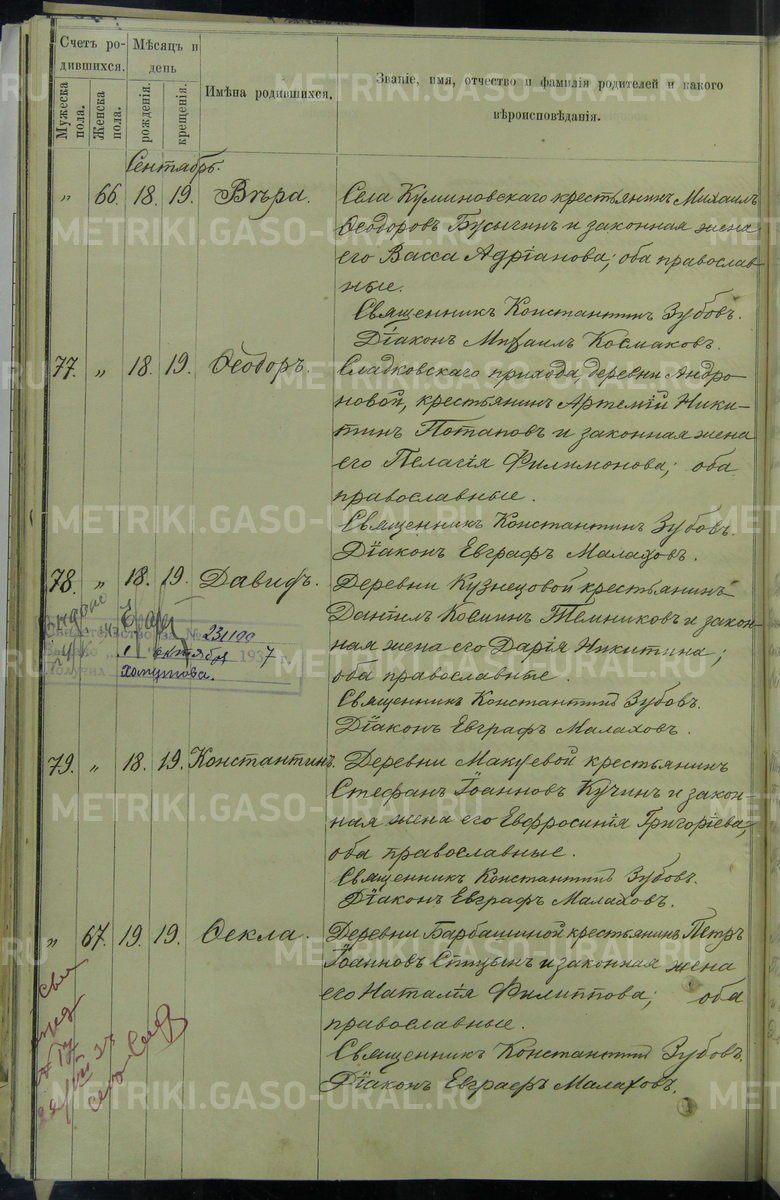 Счетъ ро-
дившихся.
Мѣсяцъ и
день
Мужеска
пола.
Женска
пола.
рожденія.
крещенія.
Имѣна родившихся.
Званіе, имя, отчество и фамилія родителей и какого
вѣроисповѣданія.
METRIKI.GASO-URAL.RU
Сентябрь.
„ 66. 18. 19. Вѣра. Села Кулиновскаго крестьянинъ Михаилъ
Ѳеодоровъ Бусыгинъ и законная жена
его Васса Адріанова; оба православ-
ные.
Священникъ Константинъ Зубовъ.
Діаконъ Михаилъ Космаковъ.
77. „ 18. 19. Ѳеодоръ. Сладковскаго прихода, деревни Андро-
новой, крестьянинъ Артемій Ники-
тинъ Потаповъ и законная жена
его Пелагія Филимонова; оба
православные.
Священникъ Константинъ Зубовъ.
Діаконъ Евграфъ Малаховъ.
78. „ 18. 19. Давидъ. Деревни Кузнецовой крестьянинъ
Даніилъ Косминъ Темниковъ и закон-
ная жена его Дарія Никитина;
оба православные.
Священникъ Константинъ Зубовъ.
Діаконъ Евграфъ Малаховъ.
Свидетельство за №
октября 1937
79. „ 18. 19. Константинъ. Деревни Макуевой крестьянинъ
Стефанъ Іоанновъ Кучинъ и закон-
ная жена его Евфросинія Григоріева,
оба православные.
Священникъ Константинъ Зубовъ.
Діаконъ Евграфъ Малаховъ.
„ 67. 19. 19. Ѳекла. Деревни Барбашиной крестьянинъ Петръ
Іоанновъ Спицынъ и законная жена
его Наталія Филиппова; оба
православные.
Священникъ Константинъ Зубовъ.
Діаконъ Евграфъ Малаховъ.